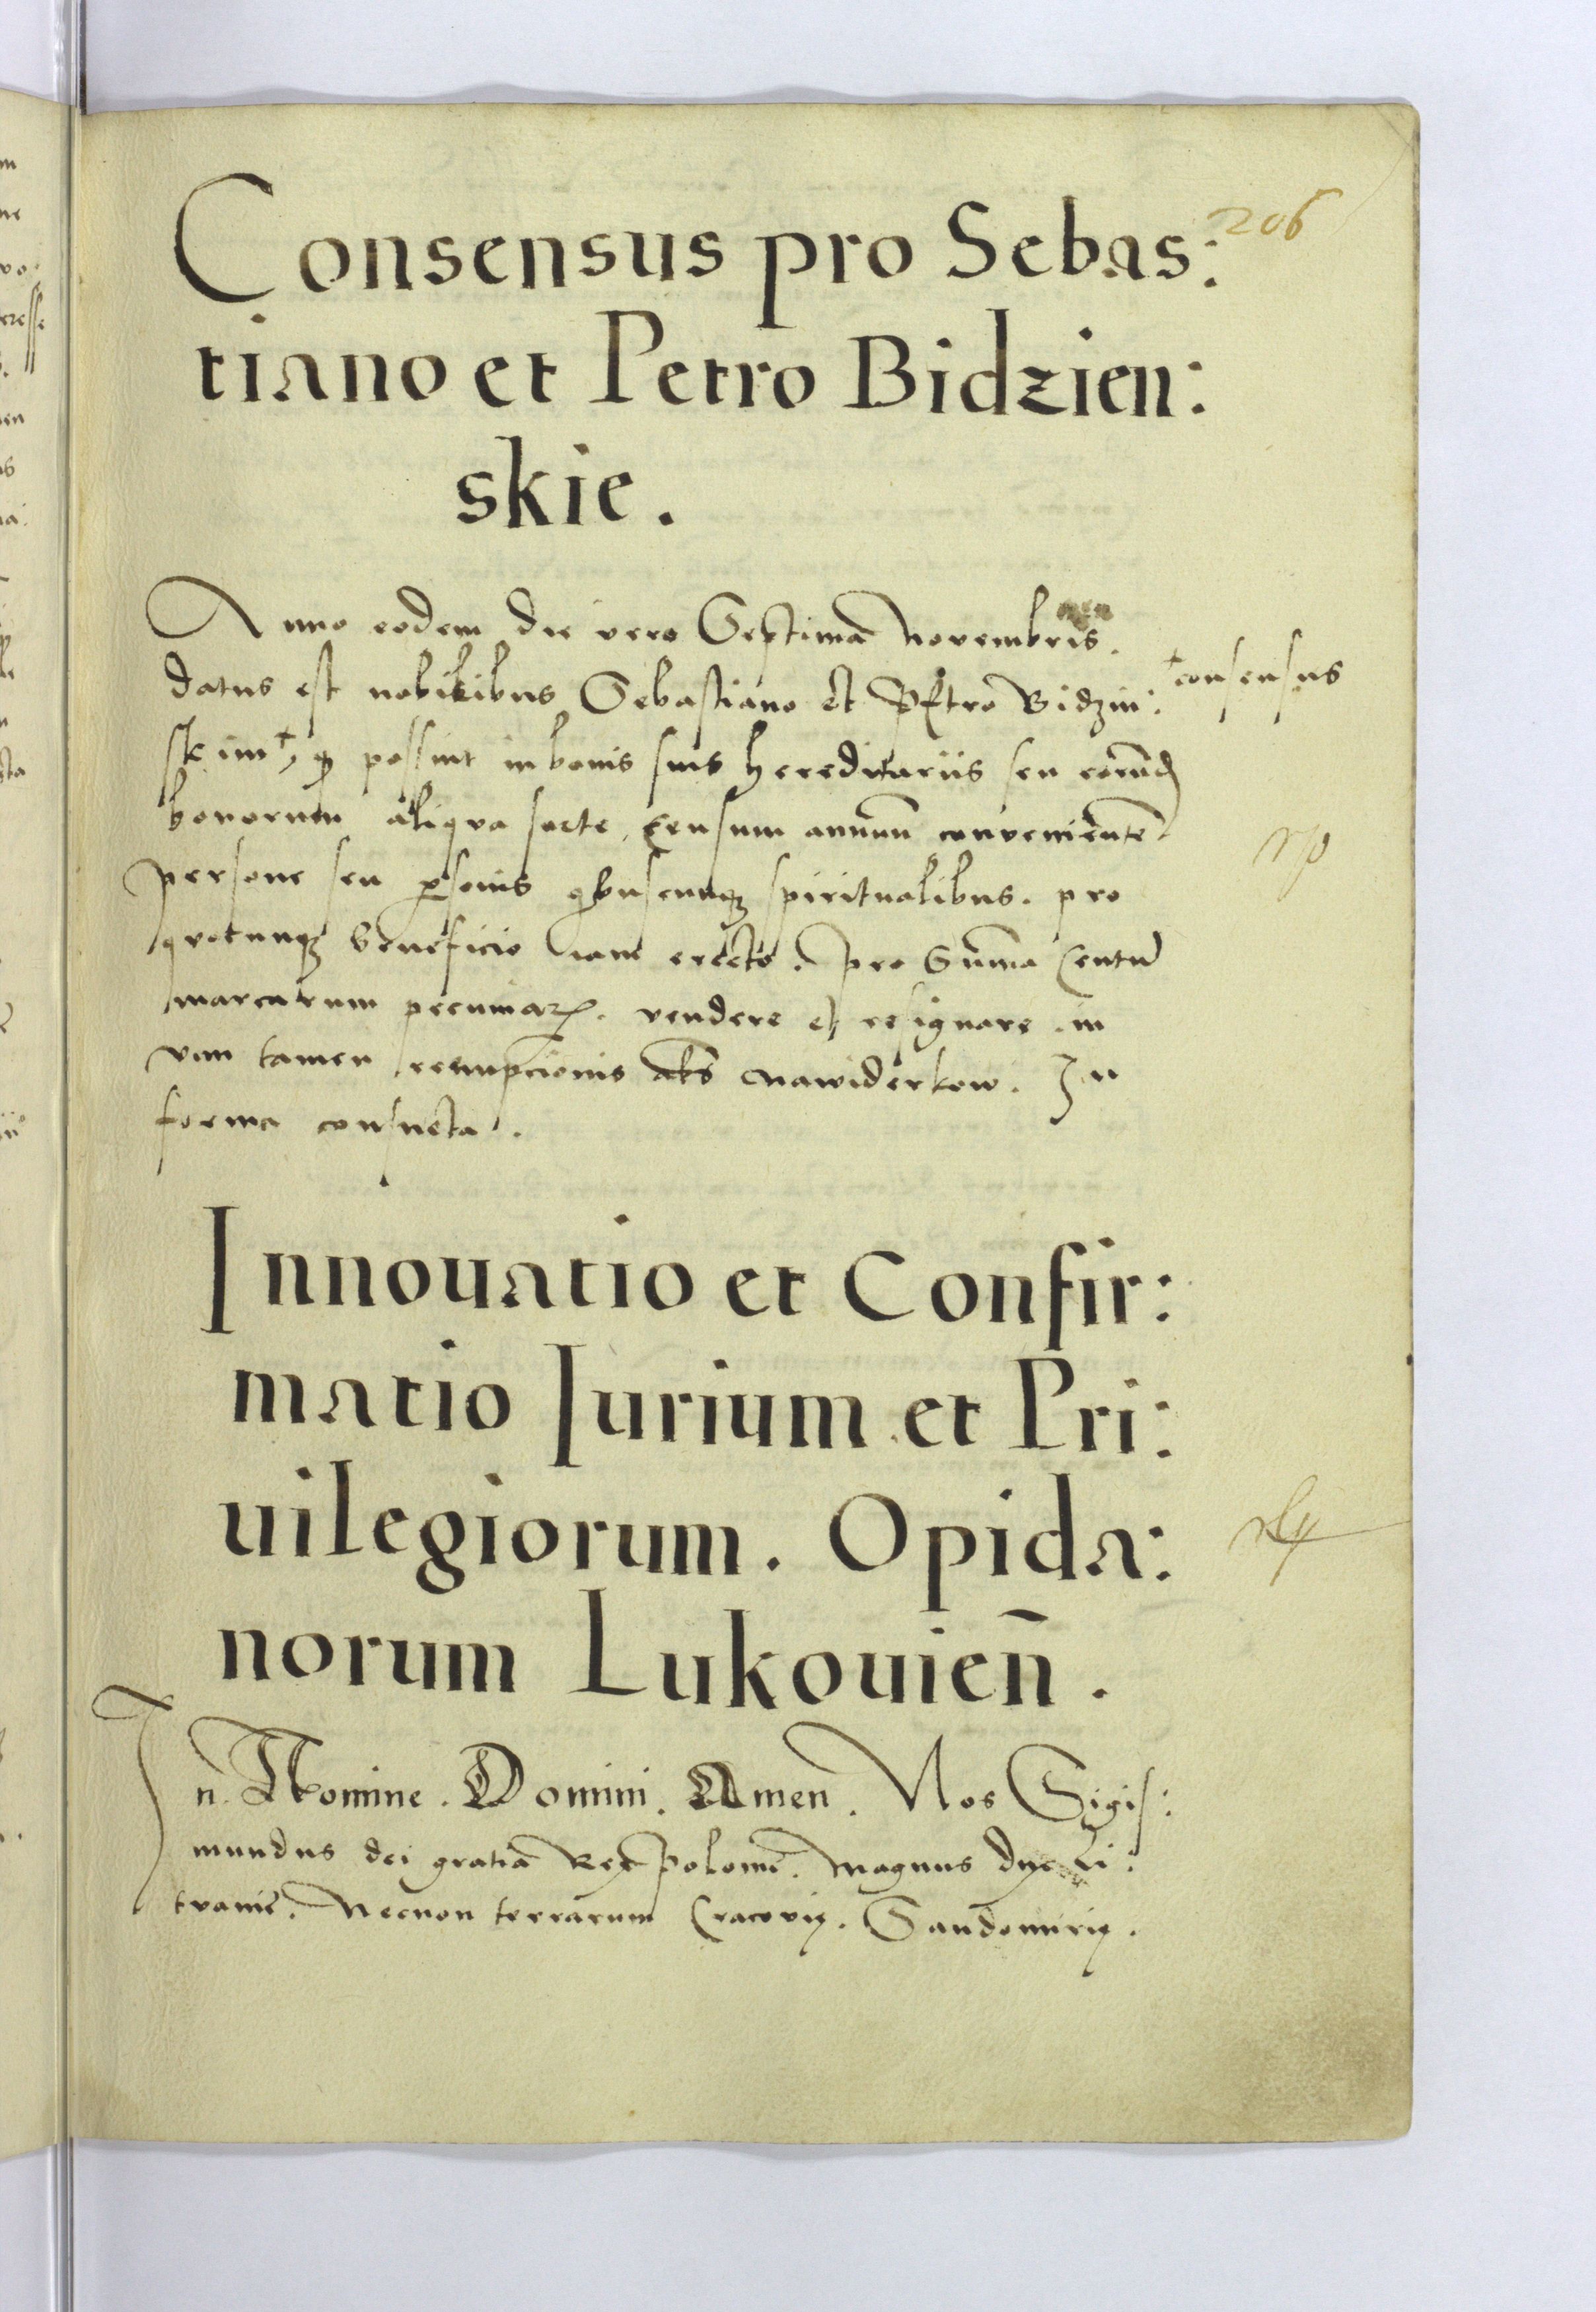 206
Consensus pro Sebas:
tiano et Petro Bidzien:
skie.
Anno eodem die vero Septima Novembris.
datus est nobilibus Sebastiano et Petro Bidzin: +consensus
skim+, qz possint in bonis suis hereditariis seu eorund
bonorum aliqua sorte, Censum annuum convenientem
persone seu psonis qbuscunqz spiritualibus. pro
qvocunqz beneficio iam erecto. pro Suma Centu
marcarum pecuniarz. vendere et resignare. in
vim tamen reempcionis als nawiderkow. In
forma consueta.
Innouatio et Confir:
matio Iurium et Pri:
uilegiorum. Opida:
norum Lukouien̄.
In. Nomine. Domini. Amen. Nos Sigis:
mundus dei gratia Rex Polonie. Magnus dux Li:
tvanie. Necnon terrarum Cracovię. Sandomirię.